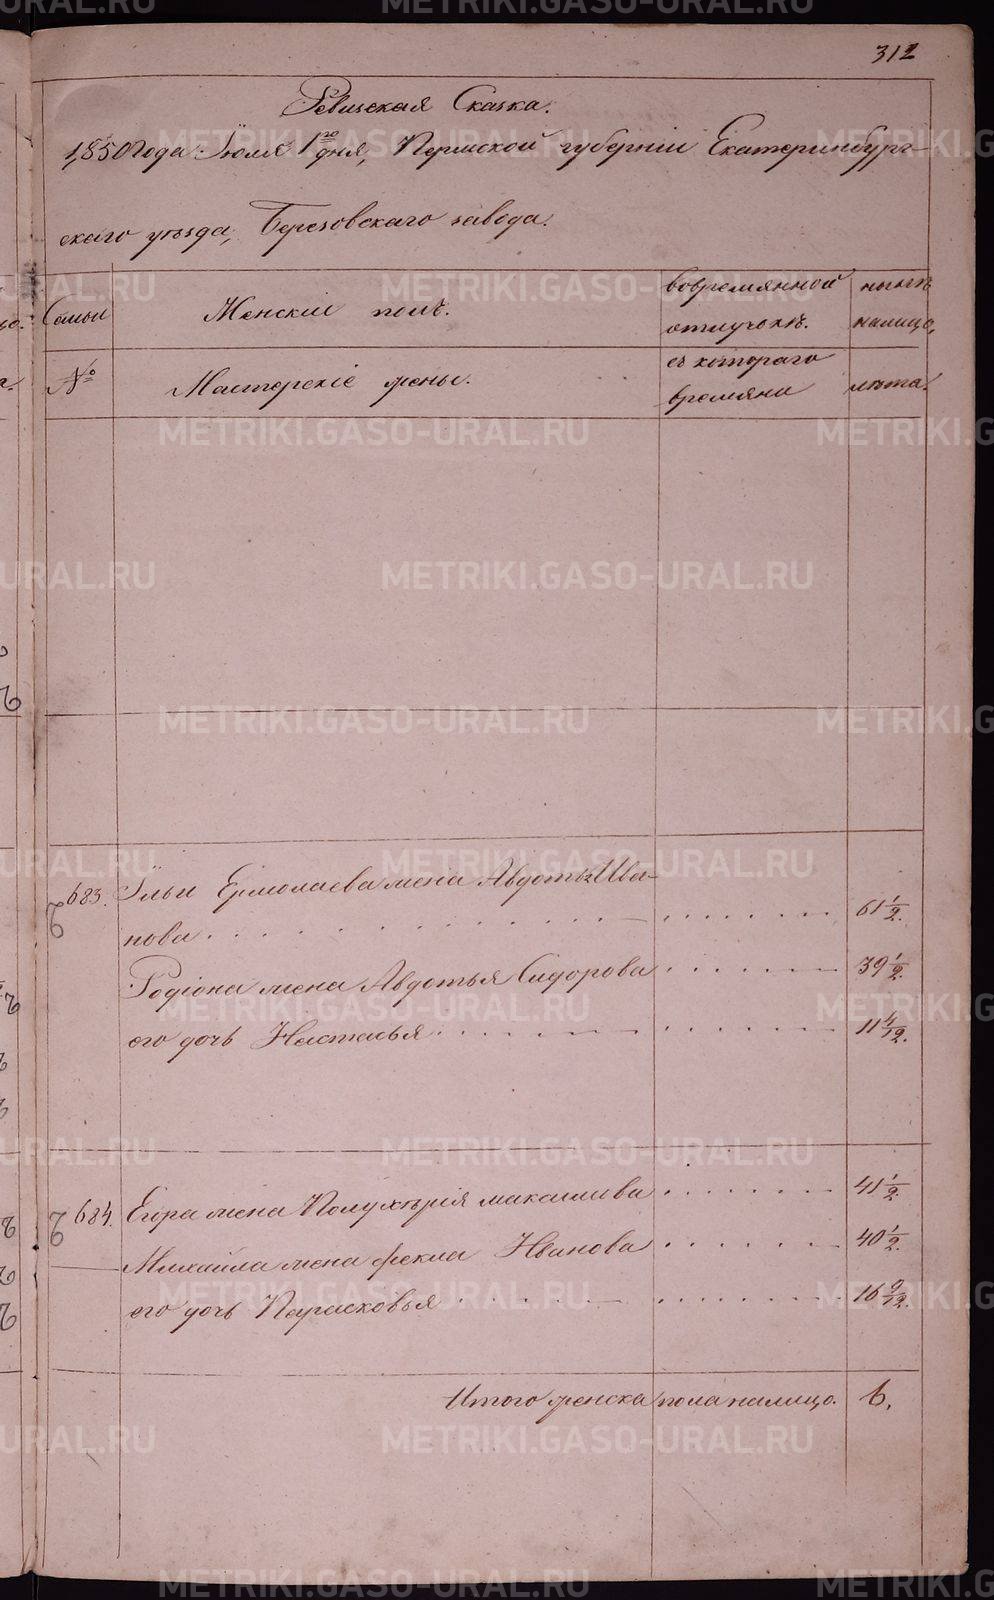 312
Ревизская Сказка.
1850 года Іюля 1го дня, Пермской губерніи Екатеринбург-
скаго уѣзда, Березовскаго завода.
Семьи
Женскій полъ.
вовремянной
отлучькѣ.
нынѣ
налицо,
№
Мастерскіе жены.
съ котораго
времяни
лѣта.
683. Ильи Ермолаева жена Авдотья Ива-
нова . . . . . . . . . . 61 1/2.
Родіона жена Авдотья Сидорова . . . . . . 39 1/2.
его дочь Насталья . . . . . . . . . . 11 4/12.
684. Егора жена Полухѣрія максимова . . . . . . 41 1/2.
Михаила жена фекла Иванова . . . . . . 40 1/2.
его дочь Парасковья . . . . . . . . . . 16 9/12.
Итого женска пола налицо. 6.
METRIKI.GASO-URAL.RU